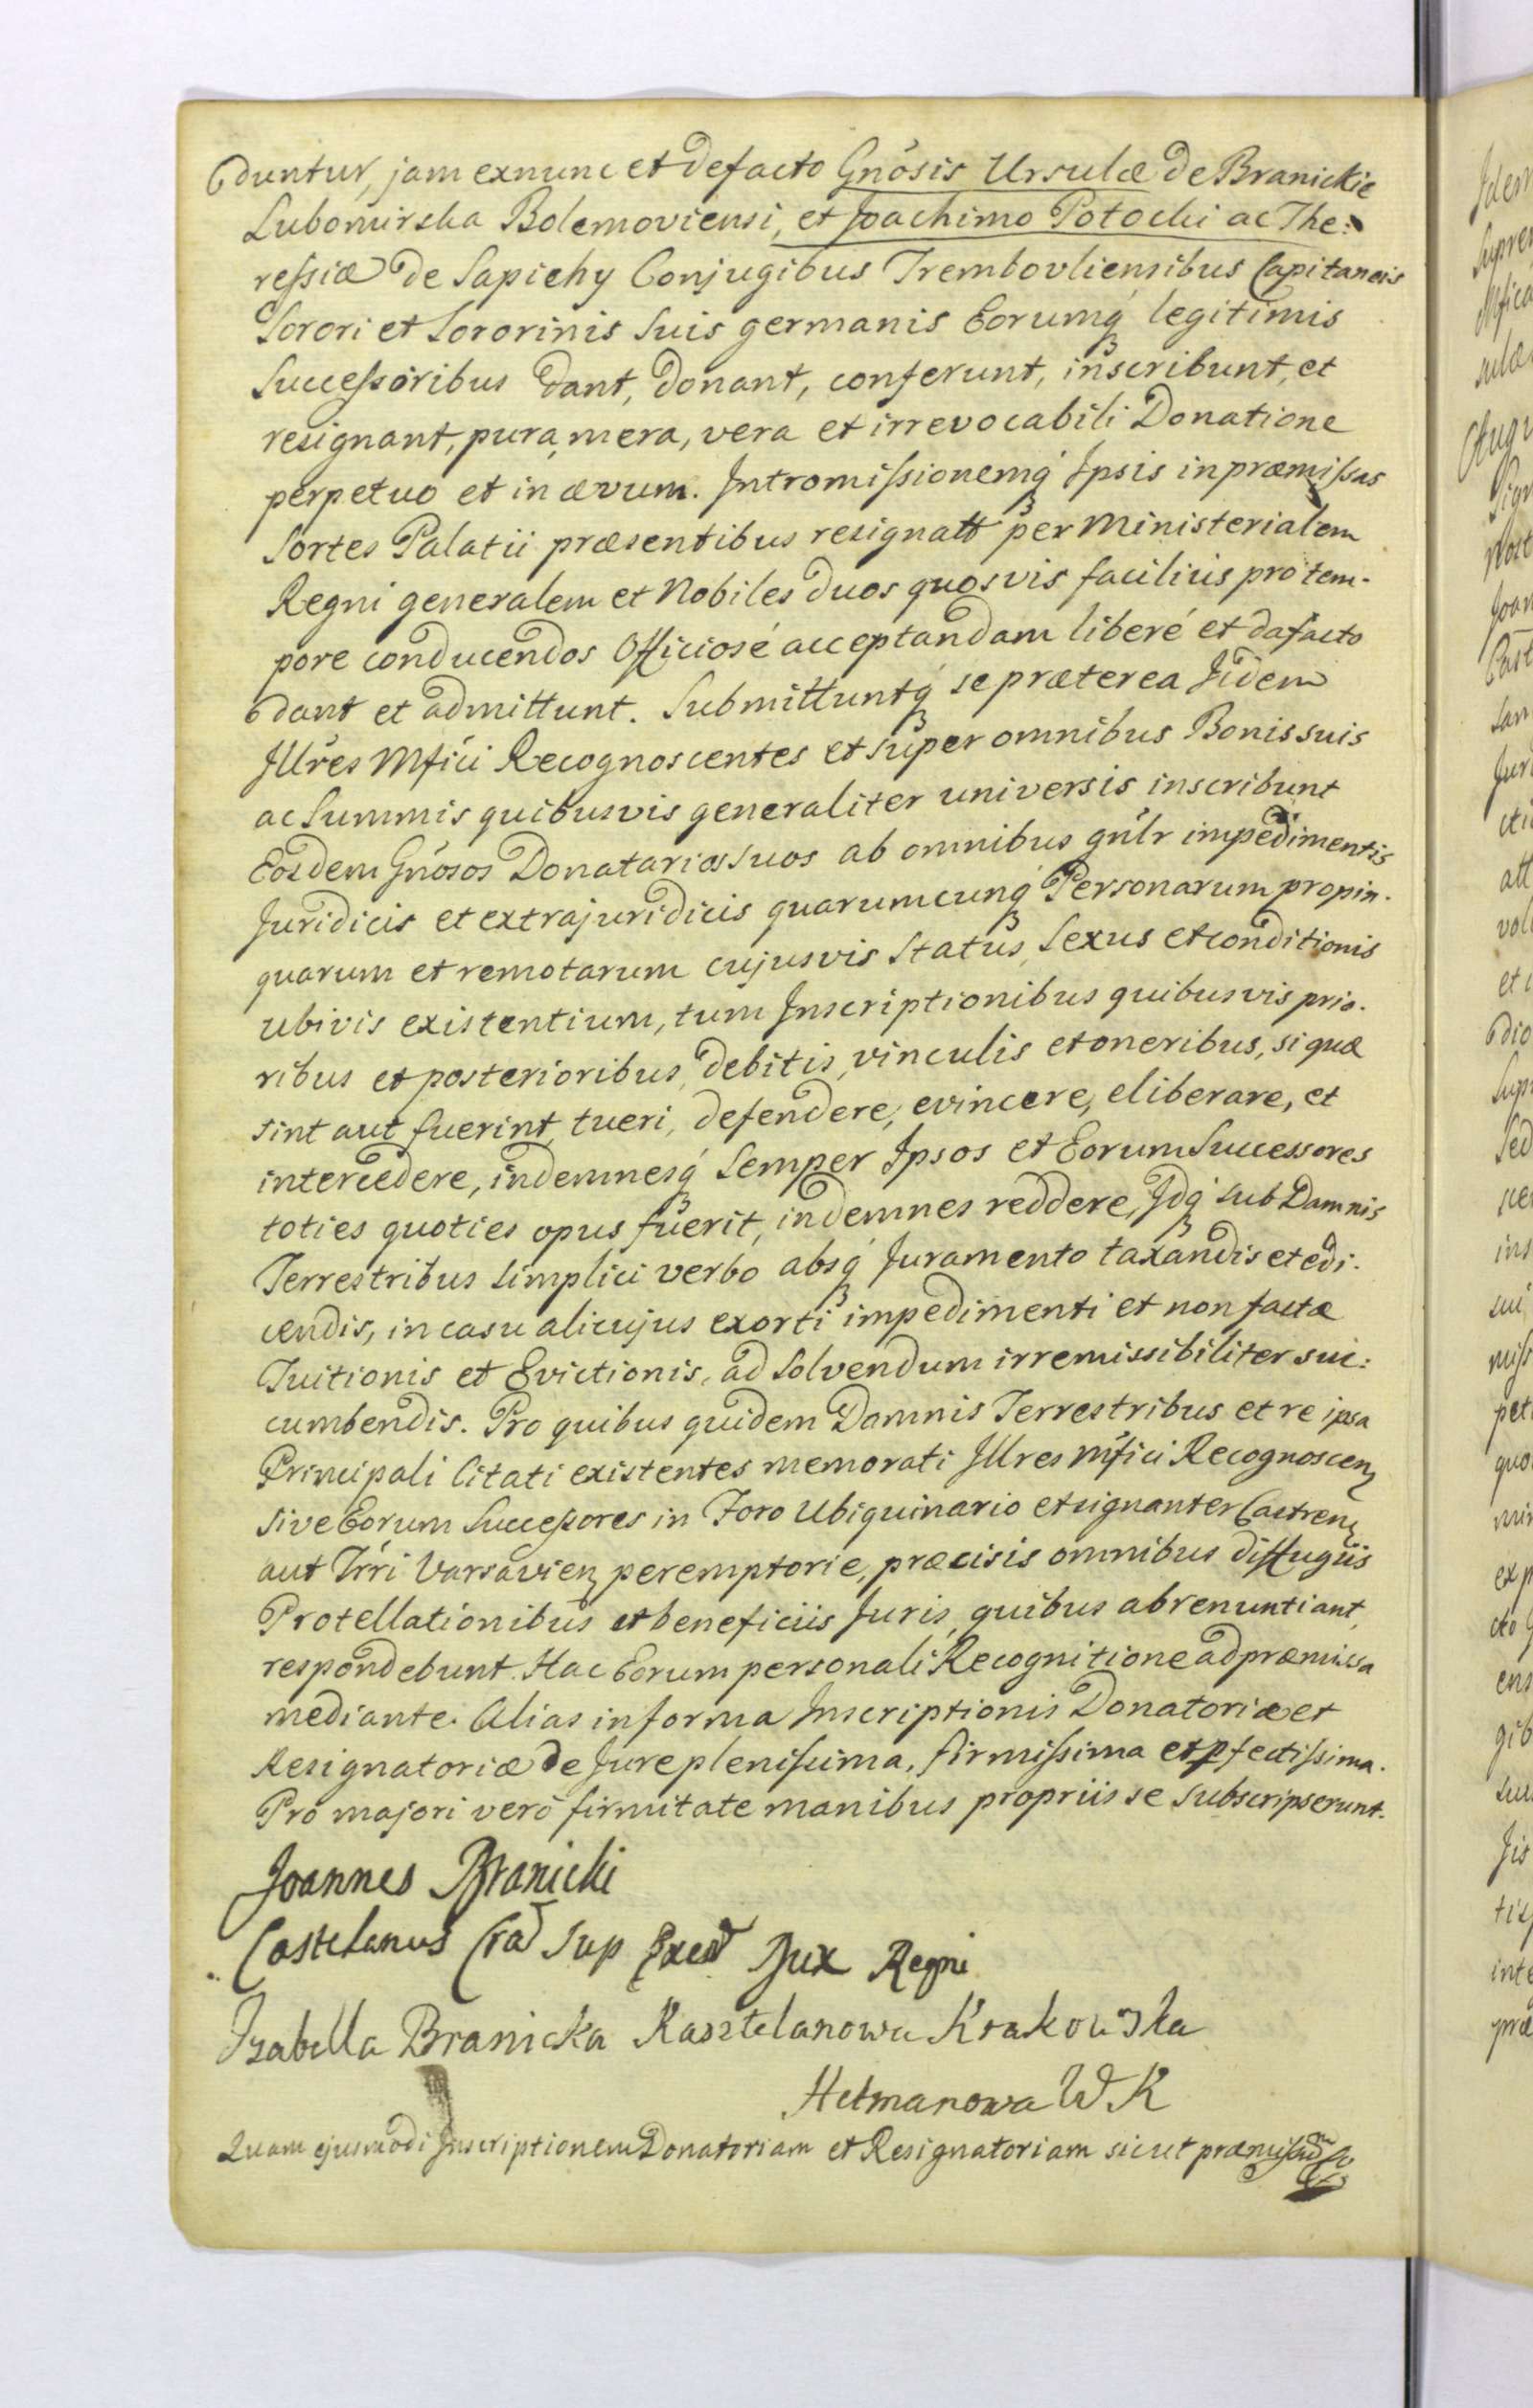 duntur, jam exnunc et defacto Gnosis Ursulæ de Branickie
Lubomirska Bolemoviensi, et Joachimo Potocki ac The:
ressiæ de Sapiehy Conjugibus Trembovliensibus Capitaneis
Sorori et Sororinis Suis germanis Eorumq́ legitimis
Successoribus dant, donant, conferunt, inscribunt, et
resignant, pura, mera, vera et irrevocabili Donatione
perpetuo et in ævum. Intromissionemq́ Ipsis in præmissas
Sortes Palatii præsentibus resignatt per Ministerialem
Regni generalem et Nobiles duos quosvis facilius pro tem-
pore conducendos Officiosé acceptandam liberé et dafacto
dant et admittunt. Submittuntq́ se præterea Iidem
Illres Mfici Recognoscentes et super omnibus Bonis suis
ac Summis quibusvis generaliter universis inscribunt
Eosdem Gnosos Donatarios suos ab omnibus gnlr impedimentis
Juridicis et extrajuridicis quarumcunq́ Personarum propin-
quarum et remotarum cujusvis Status, Sexus et conditionis
ubivis existentium, tum Inscriptionibus quibusvis prio-
ribus et posterioribus, debitis, vinculis et oneribus, si quæ
sint aut fuerint, tueri, defendere, evincere, eliberare, et
intercedere, indemnesq́ Semper Ipsos et Eorum Successores
toties quoties opus fuerit, indemnes reddere, Idq́ sub Damnis
Terrestribus simplici verbo absq́ Juramento taxandis et edi-
cendis, in casu alicujus exorti impedimenti et non factæ
Tuitionis et Evictionis, ad Solvendum irremissibiliter suc:
cumbendis. Pro quibus quidem Damnis Terrestribus et re ipsa
Principali Citati existentes memorati Illres Mfici Recognoscen
sive Eorum Successores in Foro Ubiquinario et signanter Castren
aut Trri Varsavien peremptorie, præcisis omnibus diffugiis
Protellationibus et beneficiis Juris, quibus abrenuntiant,
respondebunt. Hac Eorum personali Recognitione ad præmissa
mediante. Alias in forma Inscriptionis Donatoriæ et
Resignatoriæ de Jure plenissima, firmissima et pfectissima.
Pro majori veró firmitate manibus propriis se subscripserunt.
Joannes Branicki
Castelanus Cra Sup Exerd Dux Regni
Izabella Branicka Kasztelanowa Krakowska
Hetmanowa W K
Quam ejusmodi Inscriptionem Donatoriam et Resignatoriam sicut præmissum